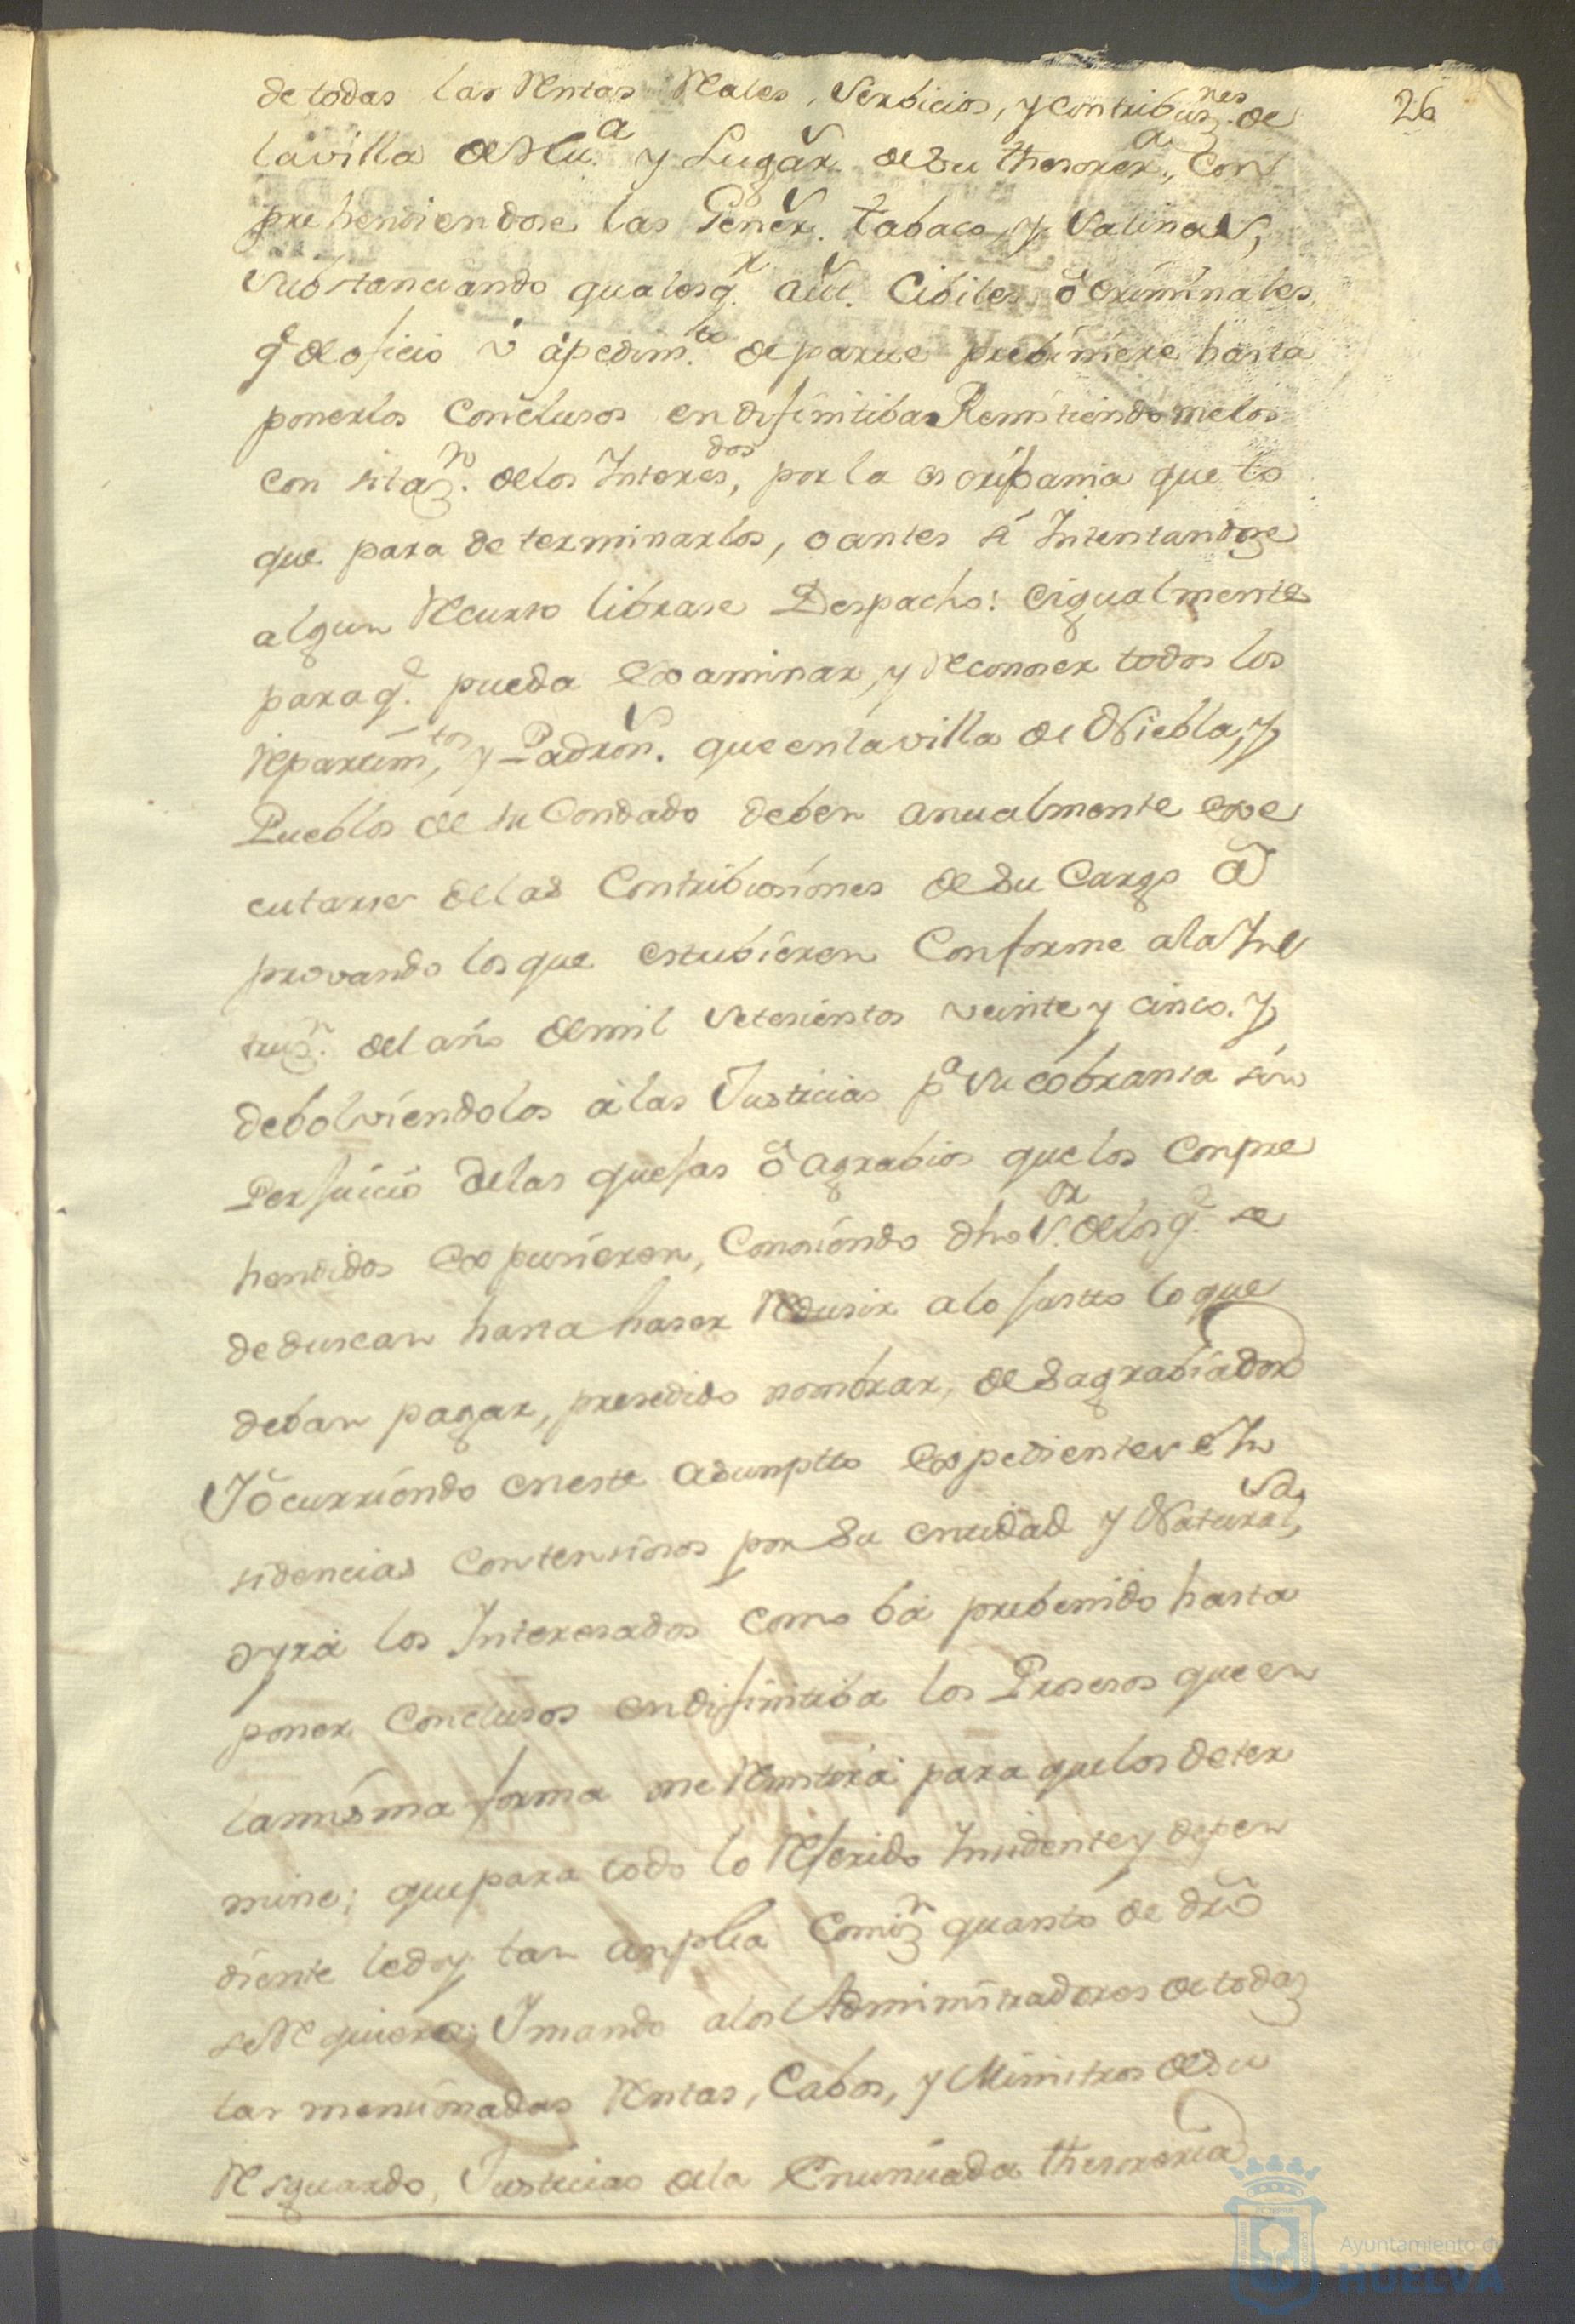 26
de todas las Rentas Reales, Serbicios, y contribuz.nes de
la villa de Hu.a y Lugar.s de su thesorer.a, Con
prehendiendose las Gener.s tabaco, y Salinas,
Substanciando qualesq.r aut.s Cibiles ò Criminales
q.e de oficio ù à pedim.to de parte prebiniere hasta
ponerlos Conclusos en difinitiba Remitiendomelos
con sitaz.n de los Interesdos, por la escribania que to
que para determinarlos, o antes si Intentandose
algun Recurso librase Despacho: e igualmente
para q.e pueda examinar, y Reconoser todos los
Repartim.tos, y Padron.s que en la villa de Niebla, y
Pueblos de su Condado deben anualmente exe
cutarse de las Contribusiones de su Cargo a
provando los que estubieren Conforme a la Ins
truz.n del año de mil setesientos veinte y cinco. Y
debolviendolos à las Justicias p.a su cobranza sin
Perjuicio de las quejas ò agrabios que los Conpre
hendidos expusieren, Conosiendo dho S.or de los q.e se
deduscan hasta haser Redusir a lo justto lo que
deban pagar, presedido nombrar, desagrabiador
Y ocurriendo en este asumptto expedientes è In
sidencias Contensiosos por su entidad y Natural.sa,
oyra los Interesados como bà prebenido hasta
poner Conclusos en difinitiba los Prosesos que en
la misma forma me Remitirà para que los deter
mine; que para todo lo Referido Insidente y depen
diente le doy tan anplia Comiz.n quanto de dro
se Requiera; Y mando a los Administradores de todas
las mensionadas Rentas, Cabos, y Ministros de su
Resguardo, Justicias de la Enunciada thesoreria
Ayuntamiento de
HUELVA